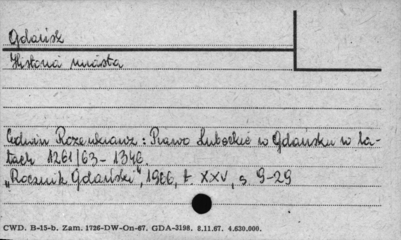 Gdańsk
Historia miasta
Edwin Rozenkranz : Prawo lubeckie w Gdańsku w la-
tach 1261/63 - 1346.
„Rocznik Gdański”, 1966, t. XXV, s. 9-29
CWD. B-15-b. Zam. 1726-DW-On-67. GDA-3198. 8.11.67. 4.630.000.